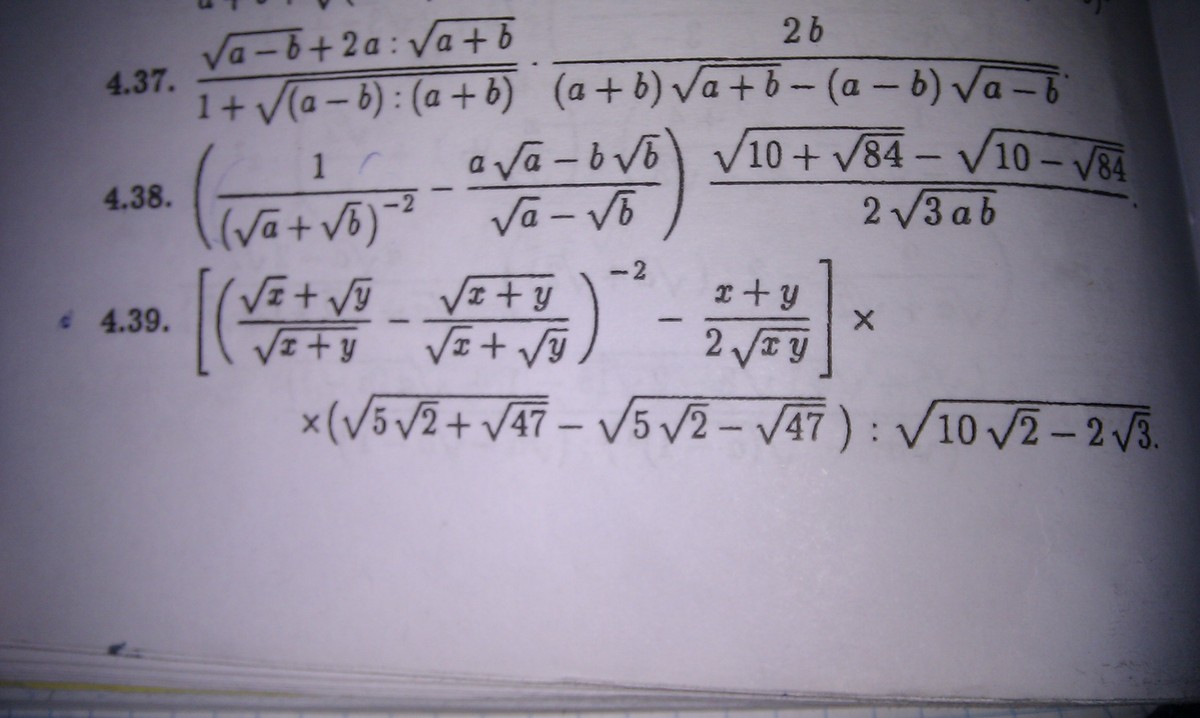 4.37. \frac{\sqrt{a-b}+2a:\sqrt{a+b}}{1+\sqrt{(a-b):(a+b)}} \cdot \frac{2b}{(a+b)\sqrt{a+b}-(a-b)\sqrt{a-b}}.
4.38. \left(\frac{1}{(\sqrt{a}+\sqrt{b})^{-2}}-\frac{a\sqrt{a}-b\sqrt{b}}{\sqrt{a}-\sqrt{b}}\right) \frac{\sqrt{10+\sqrt{84}}-\sqrt{10-\sqrt{84}}}{2\sqrt{3ab}}.
4.39. \left[\left(\frac{\sqrt{x}+\sqrt{y}}{\sqrt{x+y}}-\frac{\sqrt{x+y}}{\sqrt{x}+\sqrt{y}}\right)^{-2}-\frac{x+y}{2\sqrt{xy}}\right] \times
\times(\sqrt{5\sqrt{2}+\sqrt{47}}-\sqrt{5\sqrt{2}-\sqrt{47}}):\sqrt{10\sqrt{2}-2\sqrt{3}}.